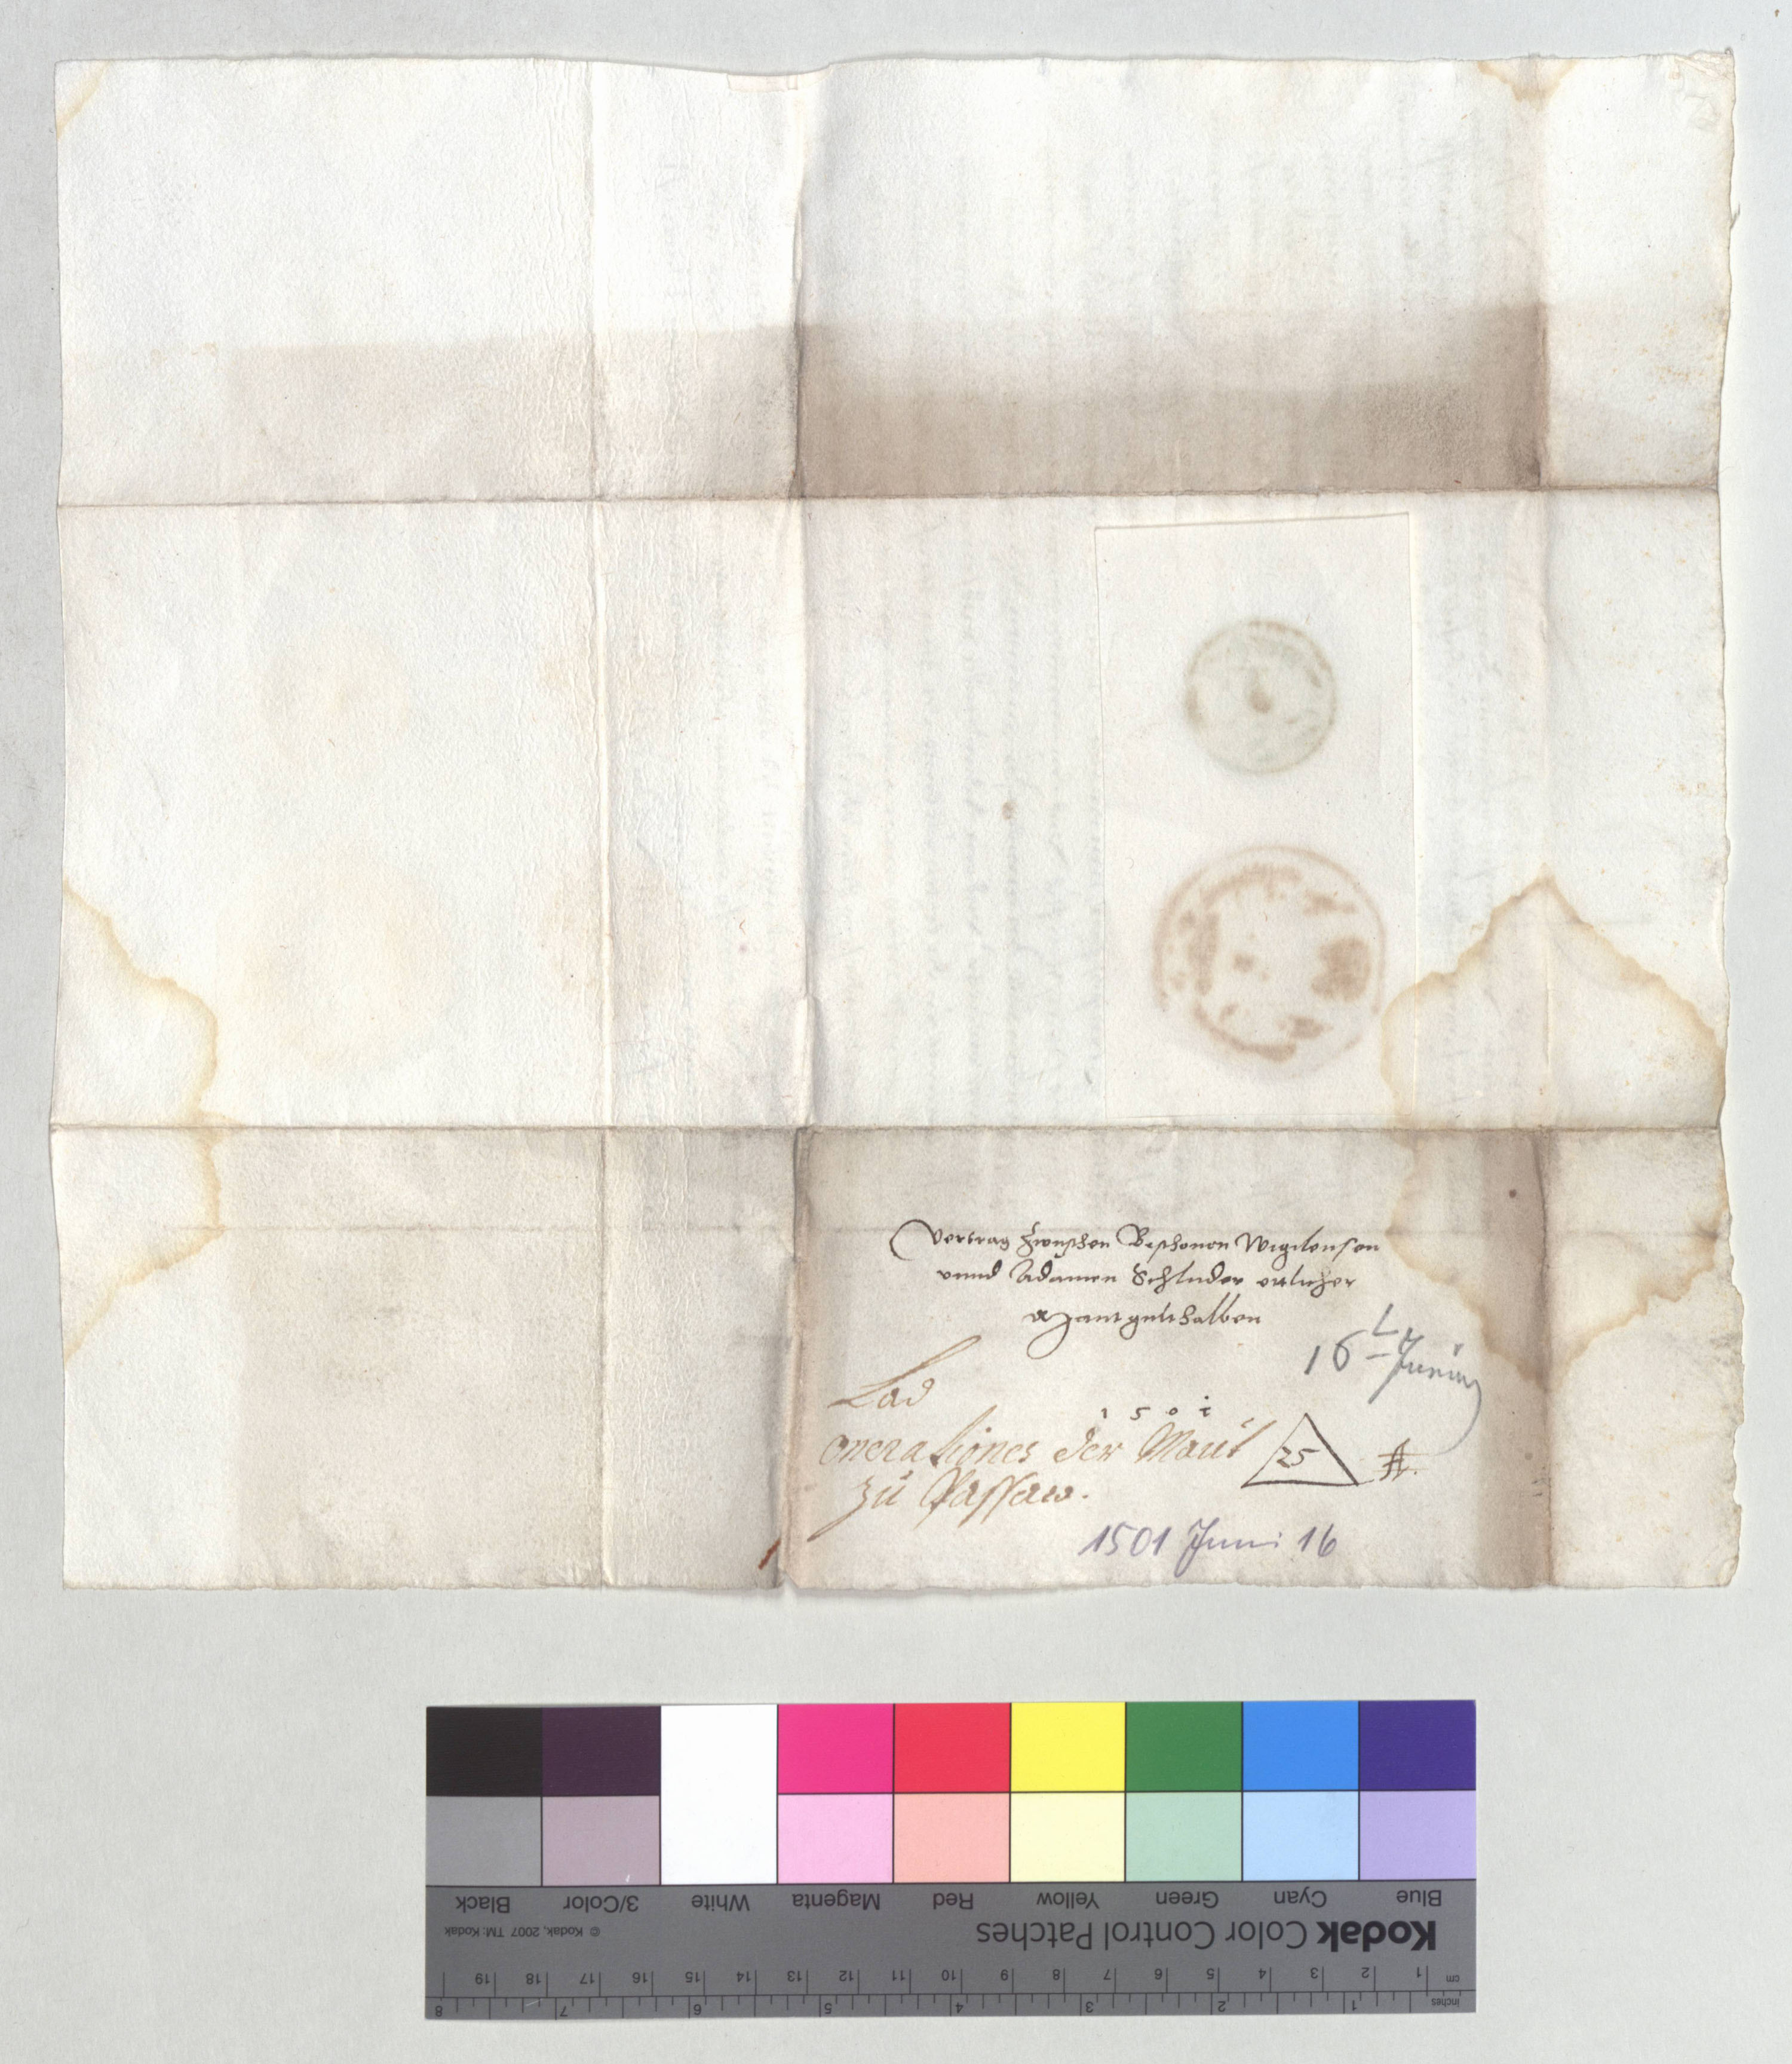 Vertrag zwischen Bischouen Wigilensen
vnnd Adamen Schluder ettlicher
Mautgult halben
16 Junius
Lad
1501
onerationes der Maut
25
A.
zu Passaw.
1501 Juni 16
Black
3/Color
White
Magenta
Red
Yellow
Green
Cyan
Blue
© Kodak, 2007 TM: Kodak
Kodak Color Control Patches
19 18 17 16 15 14 13 12 11 10 9 8 7 6 5 4 3 2 1 cm
8 7 6 5 4 3 2 1 inches